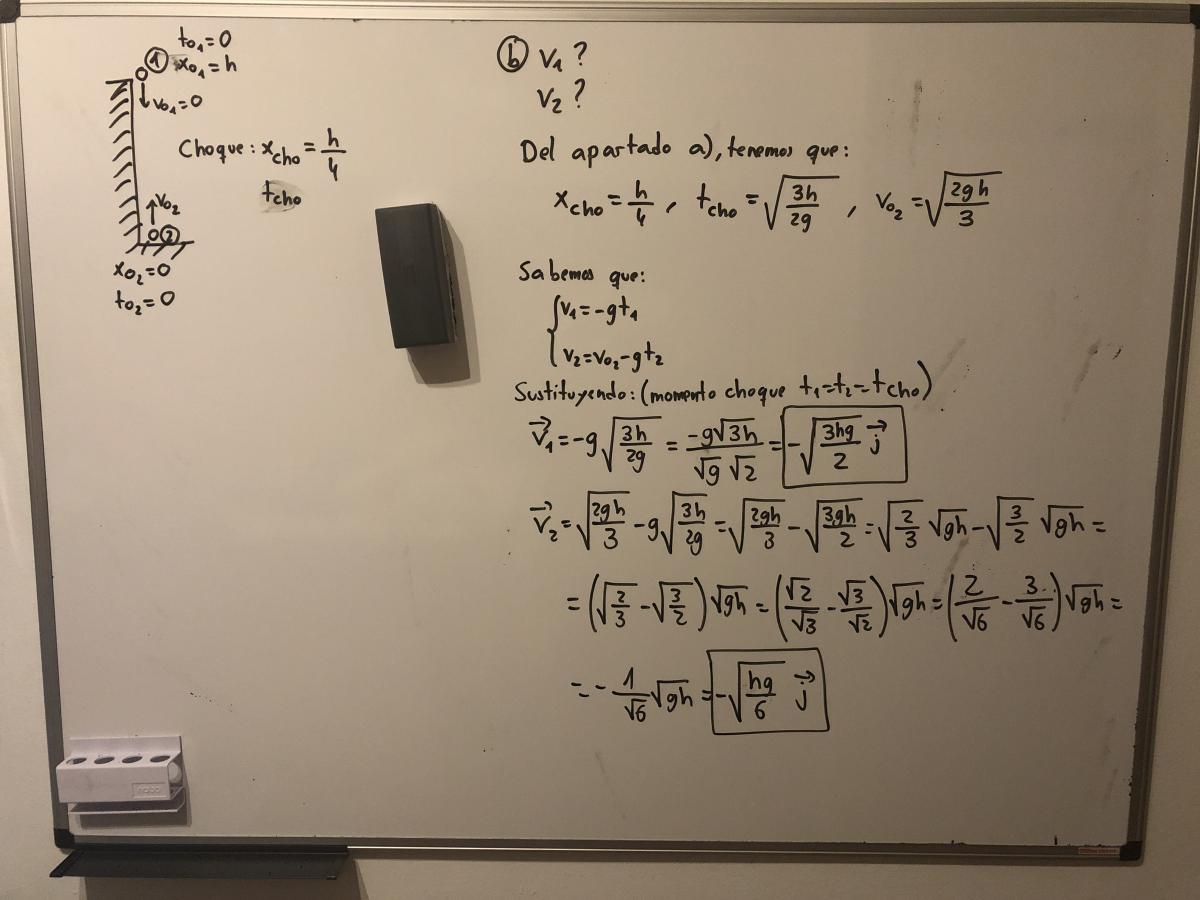 t₀₁=0
① x₀₁=h
v₀₁=0
Choque: x_cho = h/4
t_cho
v₀₂
②
x₀₂=0
t₀₂=0
ⓑ v₁ ?
v₂ ?
Del apartado a), tenemos que:
x_cho = h/4 , t_cho = √(3h/2g) , v₀₂ = √(2gh/3)
Sabemos que:
{ v₁=-gt₁
v₂=v₀₂-gt₂
Sustituyendo: (momento choque t₁=t₂=t_cho)
v⃗₁ = -g√(3h/2g) = -g√3h/(√g √2) = -√(3hg/2) j⃗
v⃗₂ = √(2gh/3) - g√(3h/2g) = √(2gh/3) - √(3gh/2) = √(2/3) √gh - √(3/2) √gh =
= (√(2/3) - √(3/2)) √gh = (√2/√3 - √3/√2) √gh = (2/√6 - 3/√6) √gh =
= - 1/√6 √gh = -√(hg/6) j⃗